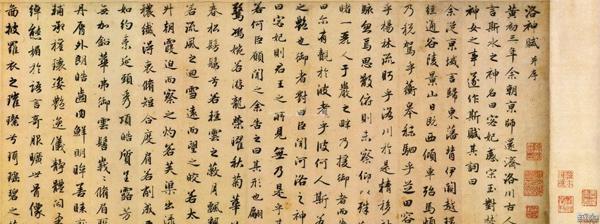 洛神賦 并序
黃初三年余朝京師還濟洛川古
言斯水之神名曰宓妃感宋玉對楚
神女之事遂作斯賦其詞曰
余從京域言歸東藩背伊闕越轘
經通谷陵景山日既西傾車殆馬煩
乃稅駕乎蘅皋秣駟乎芝田容
乎楊林流眄乎洛川於是精移
駭忽焉思散俯則未察仰以殊
睹一麗人于巖之畔乃援御者而
曰尔有覿於彼者乎彼何人斯
之豔也御者對曰臣聞河洛之神
曰宓妃則君王之所見無乃是乎
若何臣願聞之余告之曰其形也翩
驚鴻婉若游龍榮曜秋菊華
春松髣髴兮若輕雲之蔽月飄
若流風之迴雪遠而望之皎若太
升朝霞迫而察之灼若芙蕖出
穠纖得衷脩短合度肩若削成
如約素延頸秀項皓質呈露芳
無加鉛華弗御雲髻峩峩脩眉
丹脣外朗皓齒內鮮明眸善睞
輔承權瓌姿豔逸儀靜體閑柔
綽態媚於語言奇服曠世骨像
圖披羅衣之璀璨兮珥瑤碧之